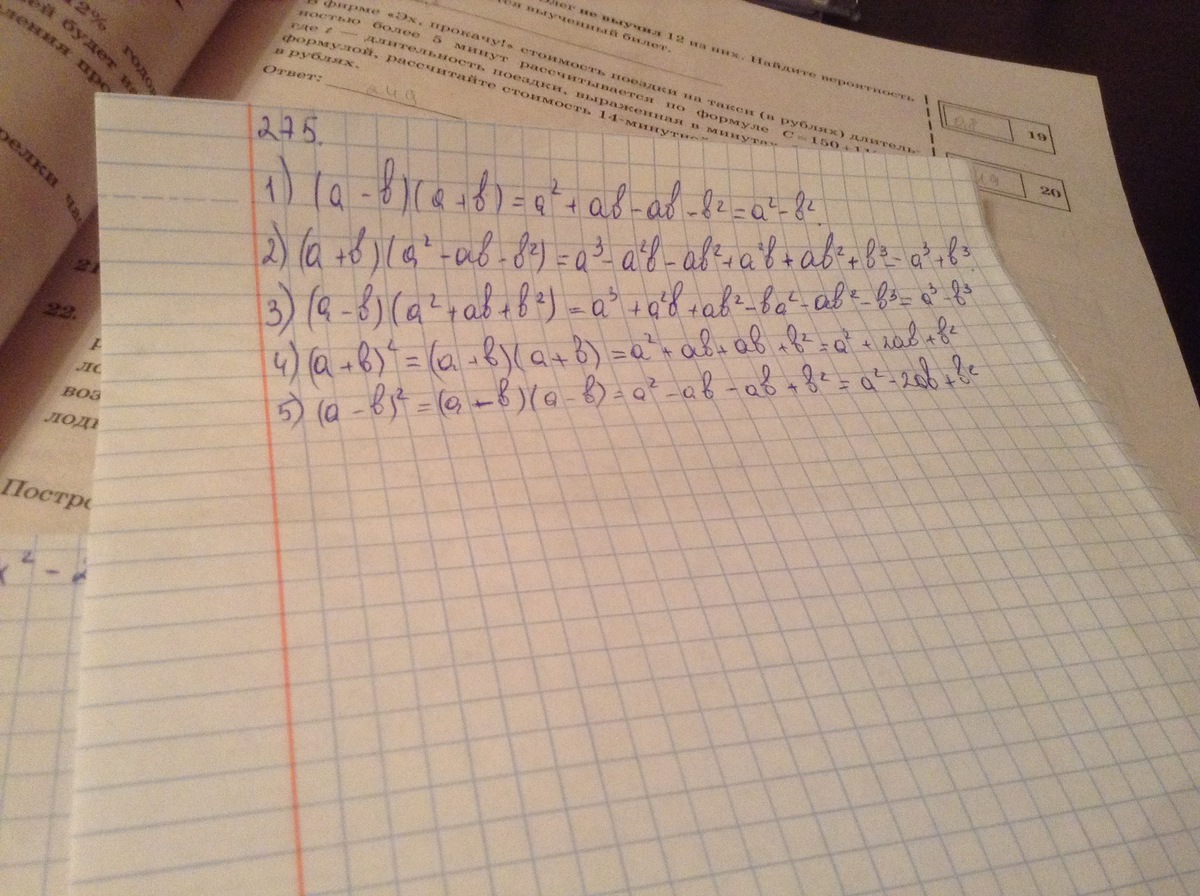 12% годо
ей будет на
ления про
релки ча
21
22.
р
ло
воз
лоды
Постро
x² - 2
лег не выучил 12 из них. Найдите вероятность
ся выученный билет.
В фирме «Эх, прокачу!» стоимость поездки на такси (в рублях) длитель-
ностью более 5 минут рассчитывается по формуле C = 150 + 11
где t — длительность поездки, выраженная в минутах
формулой, рассчитайте стоимость 14-минутной
в рублях.
Ответ: 249
0,8 19
49 20
275.
1) (a - b)(a + b) = a² + ab - ab - b² = a² - b².
2) (a + b)(a² - ab - b²) = a³ - a²b - ab² + a²b + ab² + b³ = a³ + b³.
3) (a - b)(a² + ab + b²) = a³ + a²b + ab² - ba² - ab² - b³ = a³ - b³
4) (a + b)² = (a + b)(a + b) = a² + ab + ab + b² = a² + 2ab + b²
5) (a - b)² = (a - b)(a - b) = a² - ab - ab + b² = a² - 2ab + b²